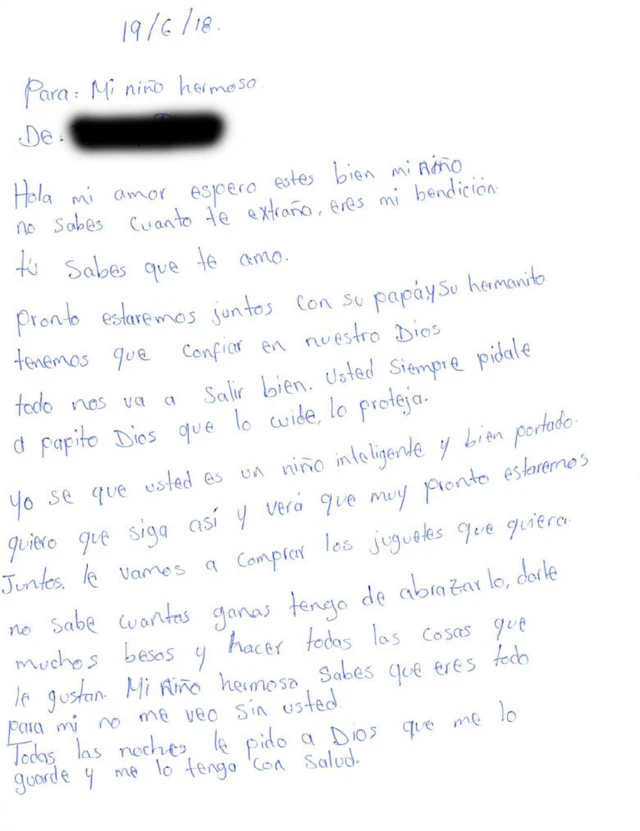 19/6/18.
Para: Mi niño hermoso
De:
Hola mi amor espero estes bien mi niño
no sabes cuanto te extraño, eres mi bendición.
tú sabes que te amo.
pronto estaremos juntos con su papá y su hermanito
tenemos que confiar en nuestro Dios
todo nos va a salir bien. Usted siempre pidale
a papito Dios que lo cuide, lo proteja.
yo se que usted es un niño inteligente y bien portado.
quiero que siga así y verá que muy pronto estaremos
Juntos. le vamos a comprar los juguetes que quiera.
no sabe cuantas ganas tengo de abrazarlo, darle
muchos besos y hacer todas las cosas que
le gustan. Mi niño hermoso sabes que eres todo
para mi no me veo sin usted.
Todas las noches le pido a Dios que me lo
guarde y me lo tenga con salud.